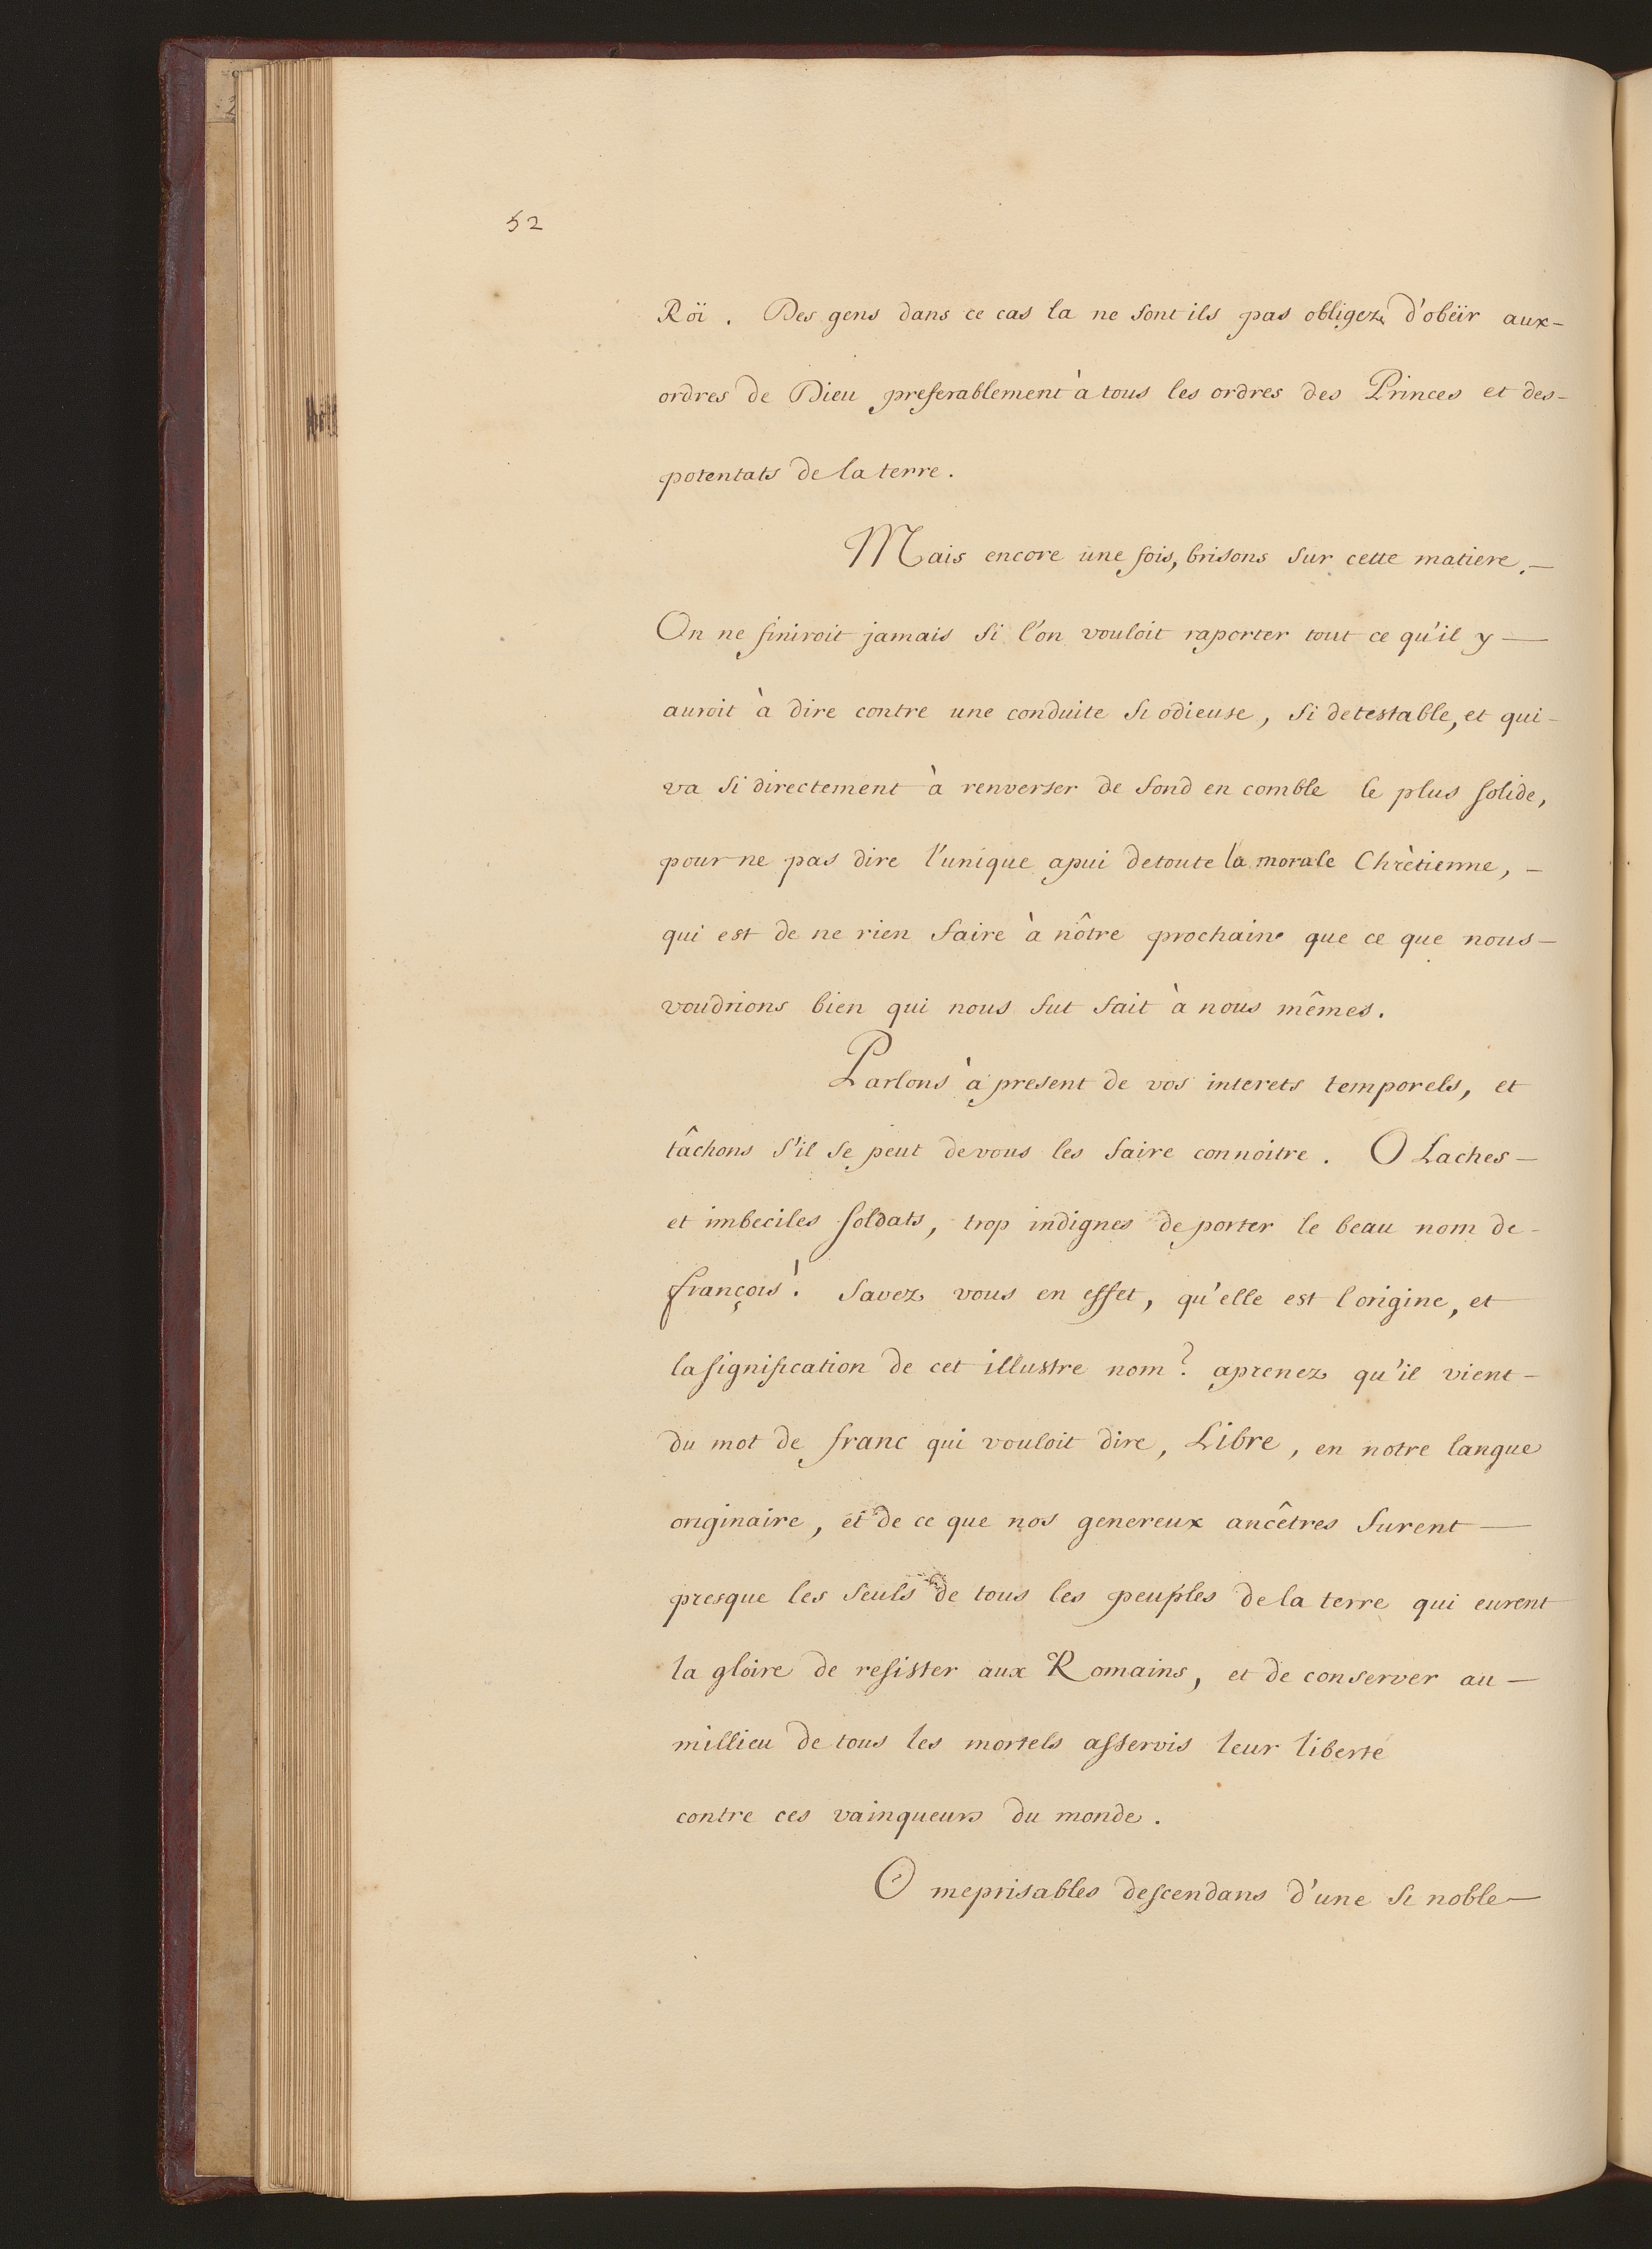 52
Röi. Des gens dans ce cas la ne sont ils pas obligez d'obëir aux-
ordres de Dieu preferablement à tous les ordres des Princes et des-
potentats de la terre.
Mais encore une fois, brisons sur cette matiere.—
On ne finiroit jamais si l'on vouloit raporter tout ce qu'il y—
auroit à dire contre une conduite si odieuse, si detestable, et qui-
va si directement à renverser de fond en comble le plus solide,
pour ne pas dire l'unique apui de toute la morale Chrètienne, -
qui est de ne rien faire à nôtre prochain que ce que nous-
voudrions bien qui nous fut fait à nous mêmes.
Parlons à present de vos interets temporels, et
tâchons s'il se peut de vous les faire connoitre. O Laches-
et imbeciles soldats, trop indignes de porter le beau nom de-
françois! Savez vous en effet, qu'elle est l'origine, et
la signification de cet illustre nom? aprenez qu'il vient-
du mot de franc qui vouloit dire, Libre, en notre langue
originaire, et de ce que nos genereux ancêtres furent—
presque les seuls de tous les peuples de la terre qui eurent
la gloire de resister aux Romains, et de conserver au—
millieu de tous les mortels asservis leur liberté
contre ces vainqueurs du monde.
O meprisables descendans d'une si noble—